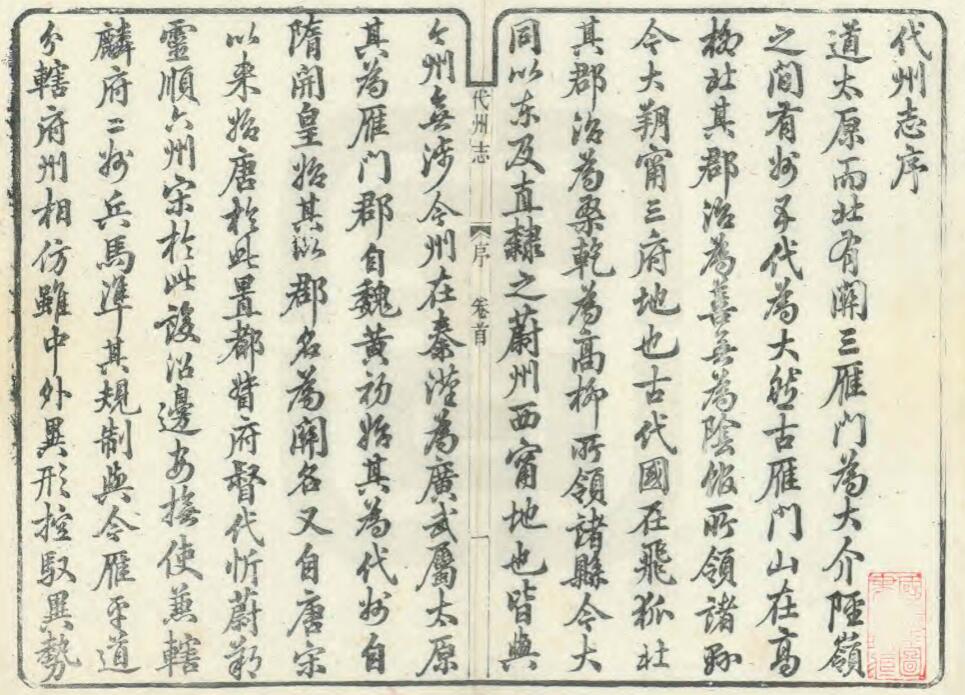 代州志序
道太原而北有關三雁門為大介陘嶺
之間有州五代為大然古雁門山在高
柳北其郡治為善無為陰館所領諸縣
今大朔甯三府地也古代國在飛狐北
其郡治為桑乾為高柳所領諸縣今大
同以東及直隸之蔚州西甯地也皆與
今州無涉今州在秦漢為廣武屬太原
其為雁門郡自魏黃初始其為代州自
隋開皇始其以郡名為關名又自唐宋
以來始唐於此置都督府督代忻蔚朔
靈順六州宋於此設沿邊安撫使兼轄
麟府二州兵馬準其規制與今雁平道
分轄府州相仿雖中外異形控馭異勢
代州志
序
卷首